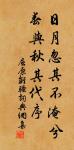 日月忽其不淹兮
春與秋其代序
屈原離騷詞典網集